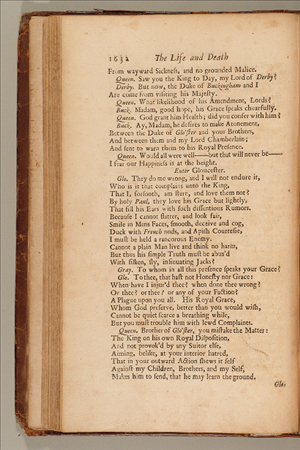 1632 The Life and Death
From wayward Sickness, and no grounded Malice.
Queen. Saw you the King to Day, my Lord of Derby?
Derby. But now, the Duke of Buckingham and I
Are come from visiting his Majesty.
Queen. What likelihood of his Amendment, Lords?
Buck. Madam, good hope, his Grace speaks chearfully.
Queen. God grant him Health; did you confer with him?
Buck. Ay, Madam, he desires to make Atonement,
Between the Duke of Glo'ster and your Brothers,
And between them and my Lord Chamberlain;
And sent to warn them to his Royal Presence.
Queen. Would all were well——but that will never be——
I fear our Happiness is at the height.
Enter Gloucester.
Glo. They do me wrong, and I will not endure it,
Who is it that complains unto the King,
That I, forsooth, am stern, and love them not?
By holy Paul, they love his Grace but lightly,
That fill his Ears with such dissentious Rumors.
Because I cannot flatter, and look fair,
Smile in Mens Faces, smooth, deceive and cog,
Duck with French nods, and Apish Courtesie,
I must be held a rancorous Enemy.
Cannot a plain Man live and think no harm,
But thus his simple Truth must be abus'd
With silken, sly, insinuating Jacks?
Gray. To whom in all this presence speaks your Grace?
Glo. To thee, that hast not Honesty nor Grace:
When have I injur'd thee? when done thee wrong?
Or thee? or thee? or any of your Faction?
A Plague upon you all. His Royal Grace,
Whom God preserve, better than you would wish,
Cannot be quiet scarce a breathing while,
But you must trouble him with lewd Complaints.
Queen. Brother of Glo'ster, you mistake the Matter:
The King on his own Royal Disposition,
And not provok'd by any Suitor else,
Aiming, belike, at your interior hatred,
That in your outward Action shews it self
Against my Children, Brothers, and my Self,
Makes him to send, that he may learn the ground.
Glo.